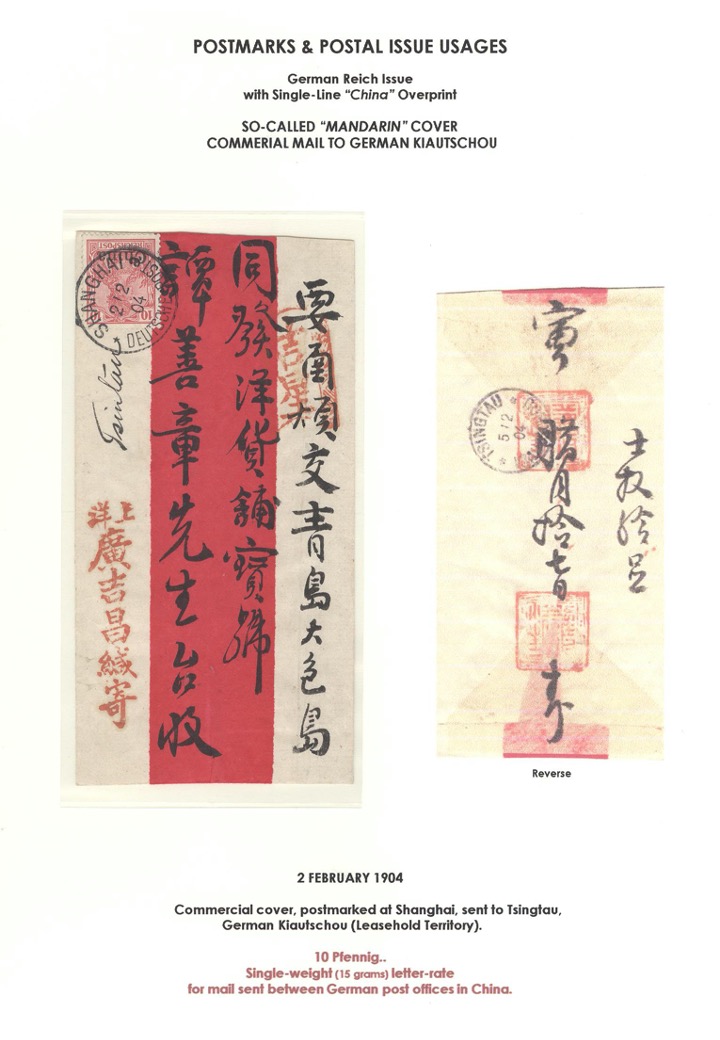 POSTMARKS & POSTAL ISSUE USAGES
German Reich Issue
with Single-Line “China” Overprint
SO-CALLED “MANDARIN” COVER
COMMERIAL MAIL TO GERMAN KIAUTSCHOU
要函煩交青島大包島
同發洋貨舖寶號
譚善章先生台收
上洋
廣吉昌緘寄
SHANGHAI
2 12
04
DEUTSCHE POST
10
Tsintau
臘月拾七日
TSINGTAU
5 12
04
Reverse
2 FEBRUARY 1904
Commercial cover, postmarked at Shanghai, sent to Tsingtau,
German Kiautschou (Leasehold Territory).
10 Pfennig..
Single-weight (15 grams) letter-rate
for mail sent between German post offices in China.